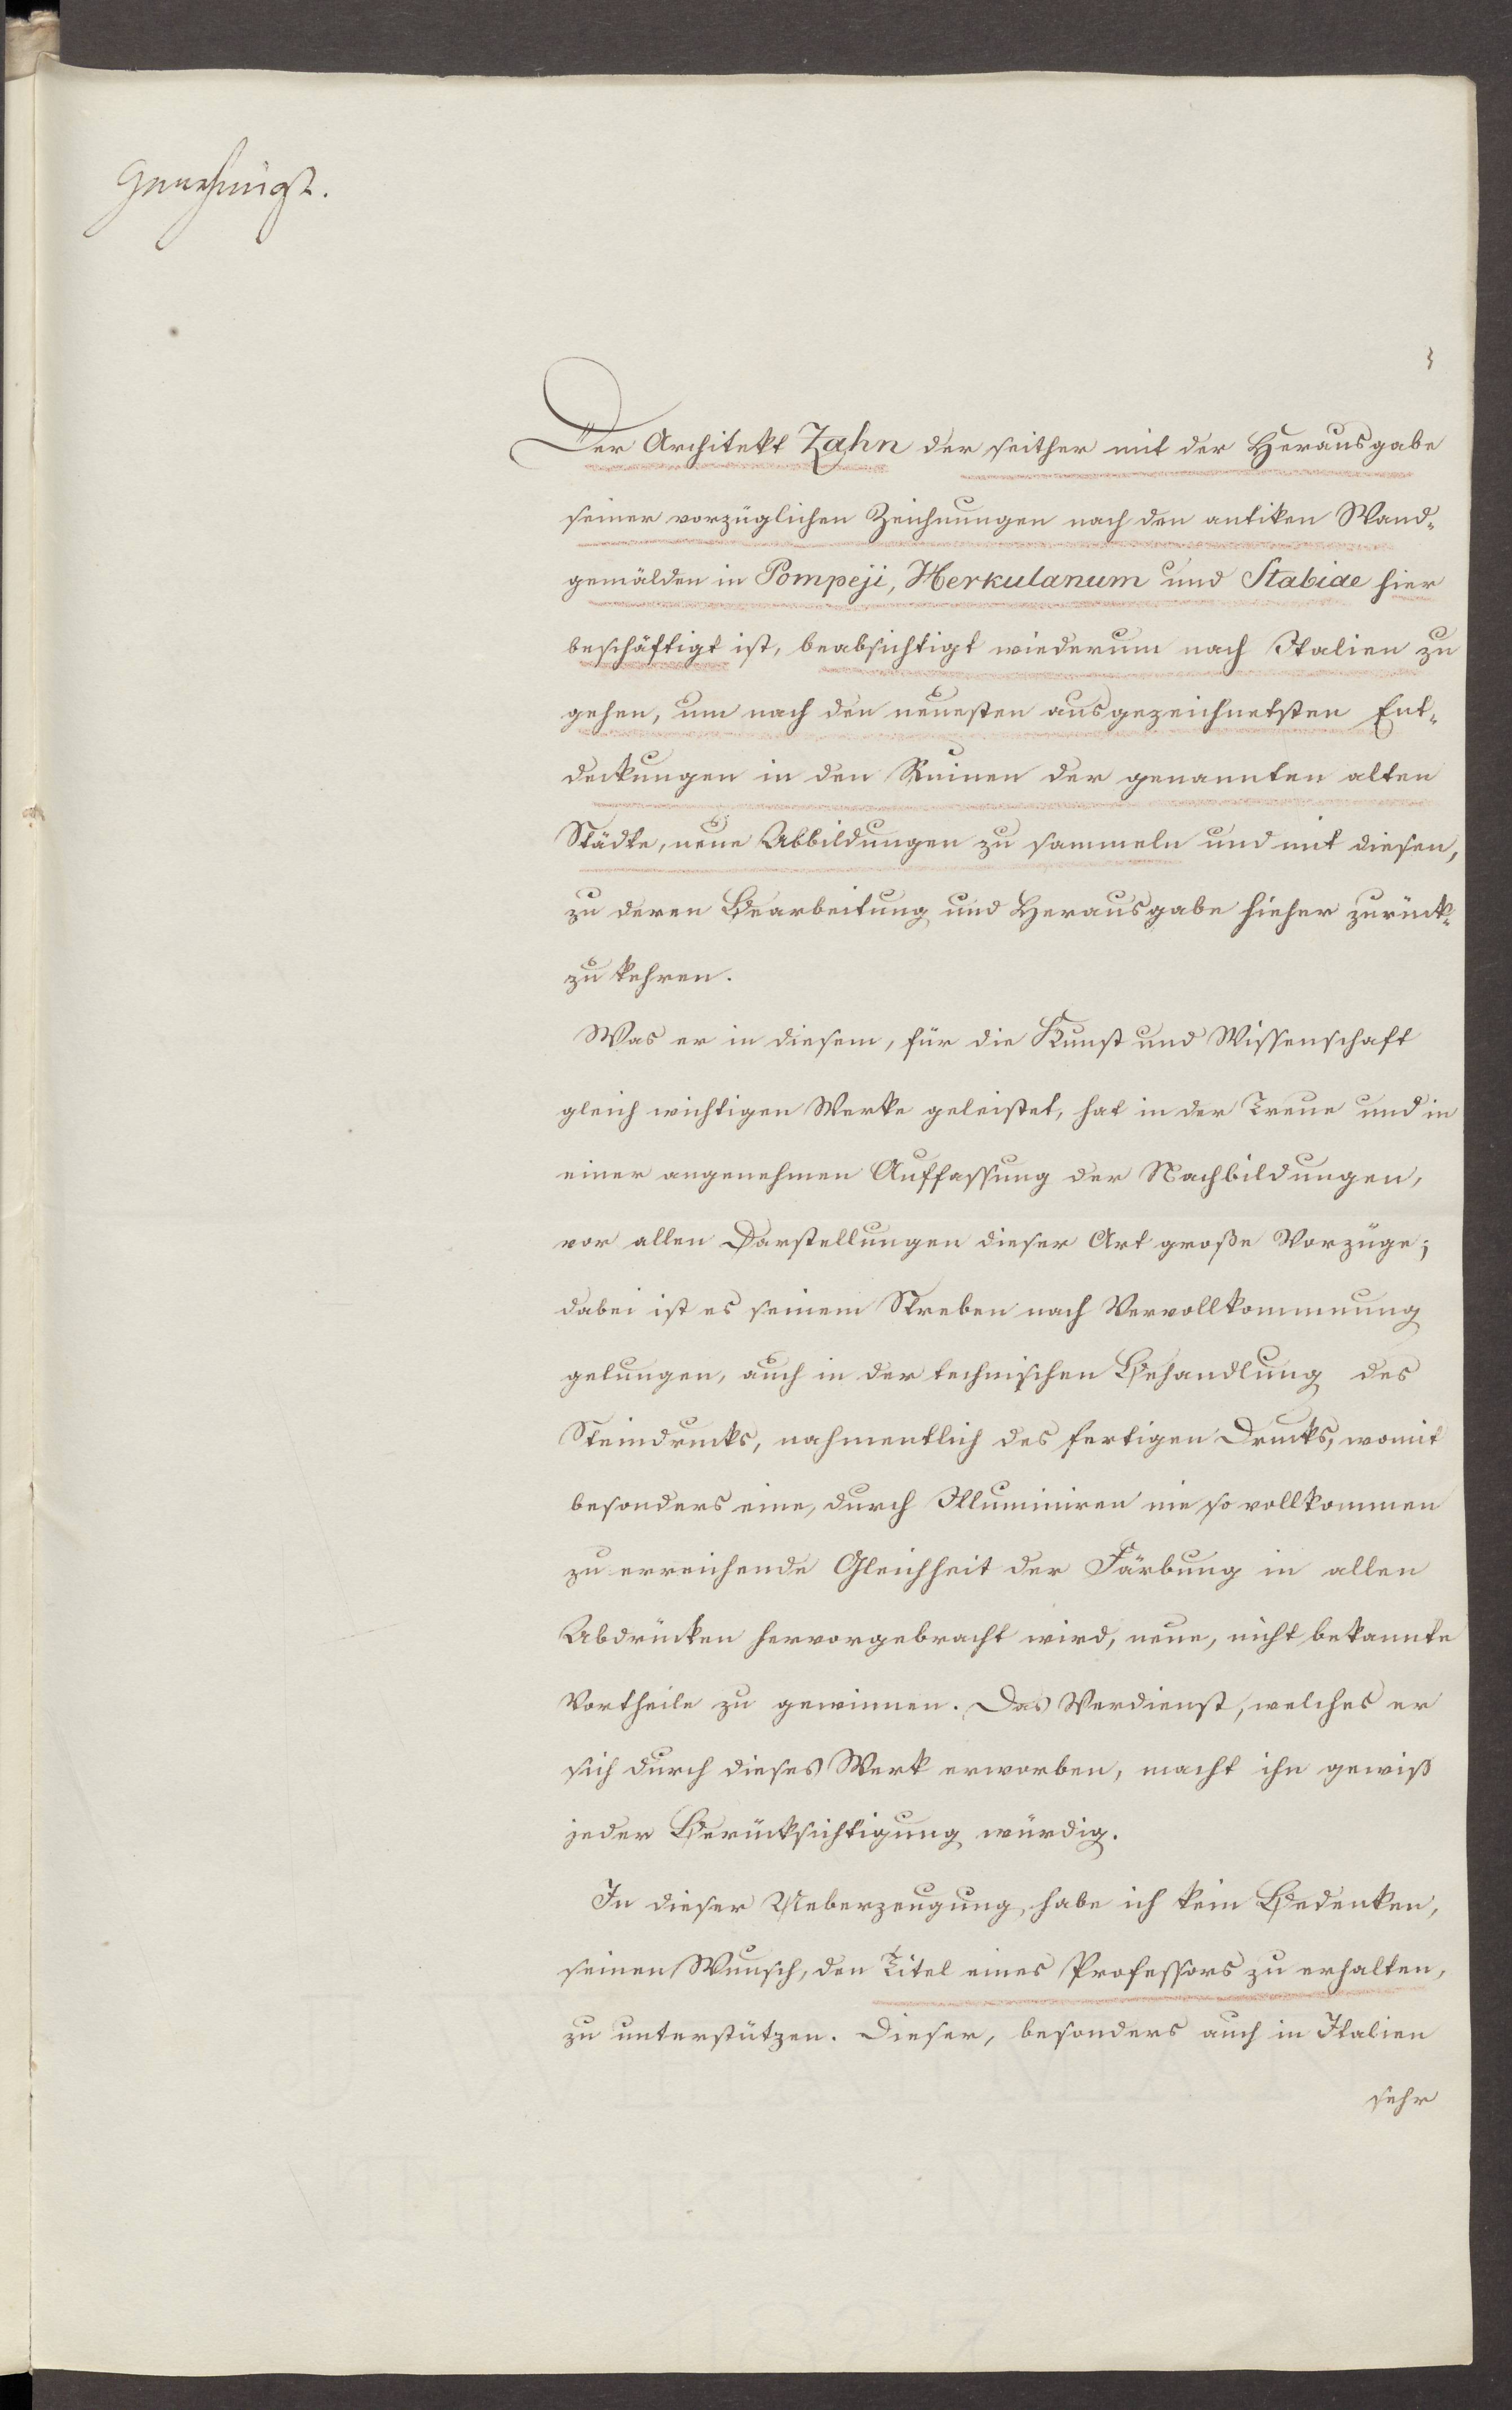 Genehmigt.
3
Der Architekt Zahn der seither mit der Herausgabe
seiner vorzüglichen Zeichnungen nach den antiken Wand-
gemälden in Pompeji, Herkulanum und Stabiae hier
beschäftigt ist, beabsichtigt wiederum nach Italien zu
gehen, um nach den neuesten ausgezeichnetsten Ent-
deckungen in den Ruinen der genannten alten
Städte, neue Abbildungen zu sammeln und mit diesen,
zu deren Bearbeitung und Herausgabe hieher zurück-
zu kehren.
Was er in diesem, für die Kunst und Wissenschaft
gleich wichtigen Werke geleistet, hat in der Treue und in
einer angenehmen Auffassung der Nachbildungen,
vor allen Darstellungen dieser Art große Vorzüge;
dabei ist es seinem Streben nach Vervollkommnung
gelungen, auch in der technischen Behandlung des
Steindrucks, nahmentlich des fertigen Drucks, womit
besonders eine, durch Illuminiren nie so vollkommen
zu erreichende Gleichheit der Färbung in allen
Abdrücken hervorgebracht wird, neue, nicht bekannte
Vortheile zu gewinnen. Das Verdienst, welches er
sich durch dieses Werk erworben, macht ihn gewiß
jeder Berücksichtigung würdig.
In dieser Ueberzeugung habe ich kein Bedenken,
seinen Wunsch, den Titel eines Professors zu erhalten,
zu unterstützen. Dieser, besonders auch in Italien
sehr